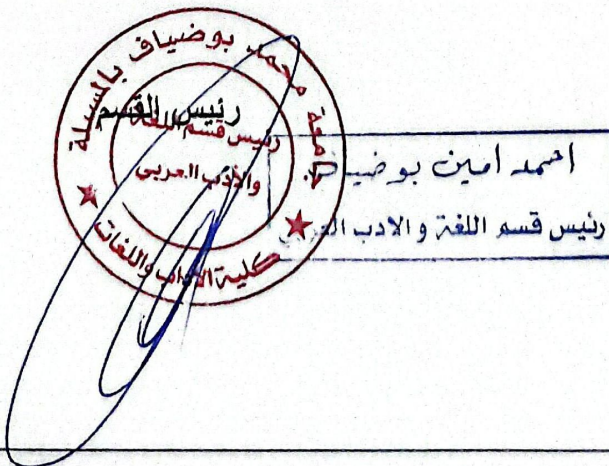 جامعة محمد بوضياف بالمسيلة
رئيس القسم
رئيس قسم اللغة
والأدب العربي
كلية الآداب واللغات
احمد امين بو ضياف
رئيس قسم اللغة و الادب العربي